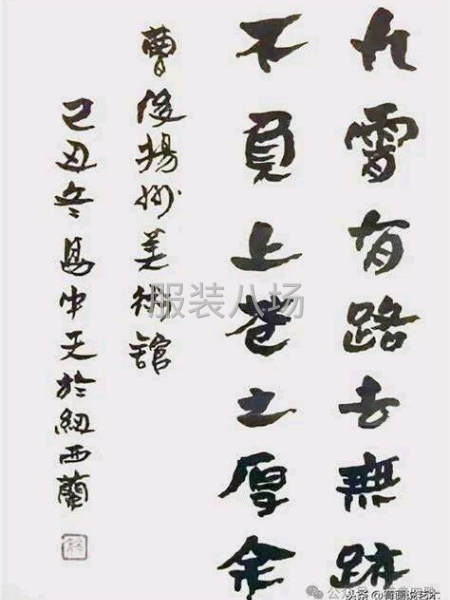 九霄有路去無跡
不負上苍之厚余
曹俊揚州美術館
己丑冬中天於紐西蘭
服装八场
公众号
头条